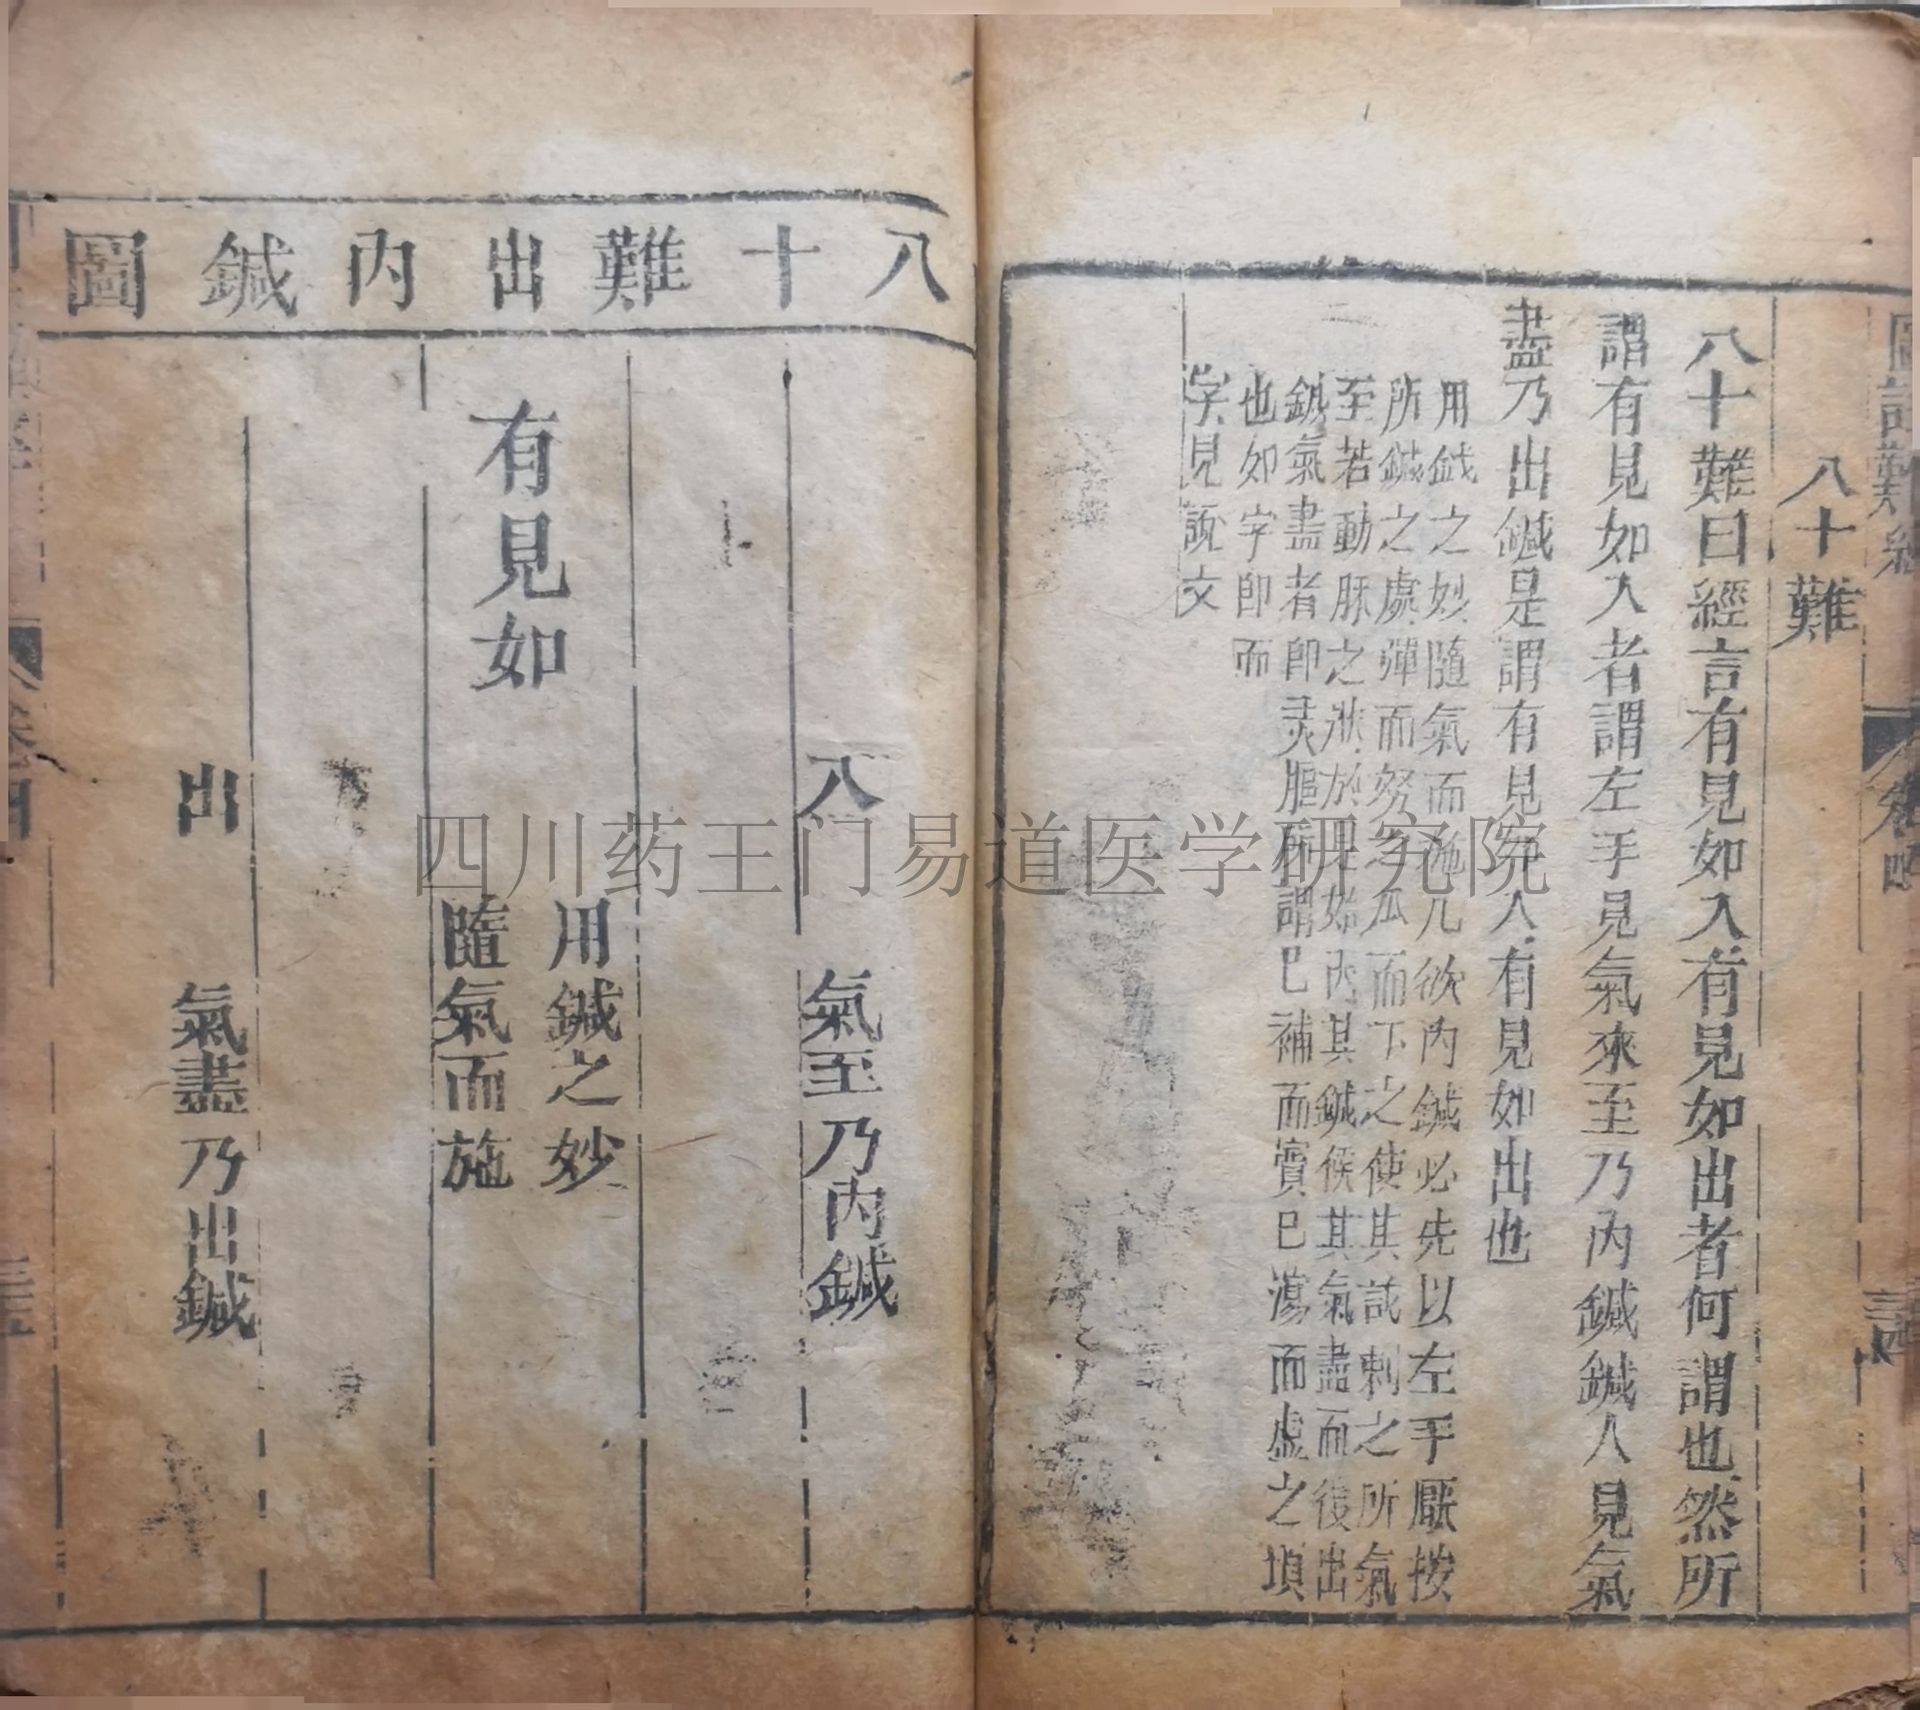 八十難
八十難曰經言有見如入有見如出者何謂也然所
謂有見如入者謂左手見氣來至乃內鍼鍼入見氣
盡乃出鍼是謂有見如入有見如出也
用鍼之妙隨氣而施凡欲內鍼必先以左手厭按
所鍼之處彈而努之爪而下之使其試刺之所氣
至若動脉之狀於是始內其鍼候其氣盡而後出
鍼氣盡者即灵樞所謂已補而實已瀉而虛之項
也如字即而
字見說文
八十難出內鍼圖
入 氣至乃內鍼
用鍼之妙
有見如 隨氣而施
出 氣盡乃出鍼
四川药王门易道医学研究院